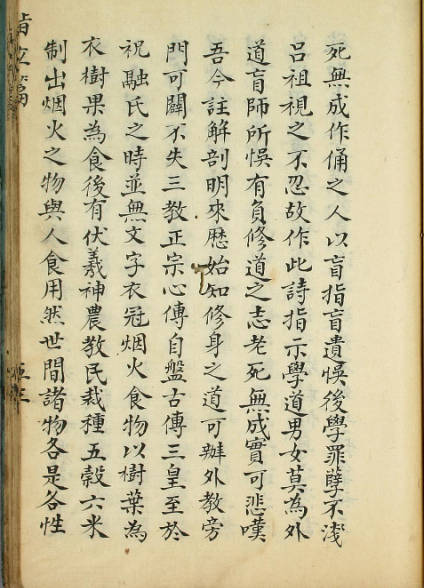 死無成作俑之人以盲指盲遺悞後學罪孽不淺
呂祖視之不忍故作此詩指示學道男女莫為外
道盲師所悞有負修道之志老死無成實可悲嘆
吾今註解剖明來歷始知修身之道可辦外教旁
門可闢不失三教正宗心傳自盤古傳三皇至於
祝融氏之時並無文字衣冠烟火食物以樹葉為
衣樹果為食後有伏羲神農教民栽種五穀六米
制出烟火之物與人食用然世間諸物各是各性